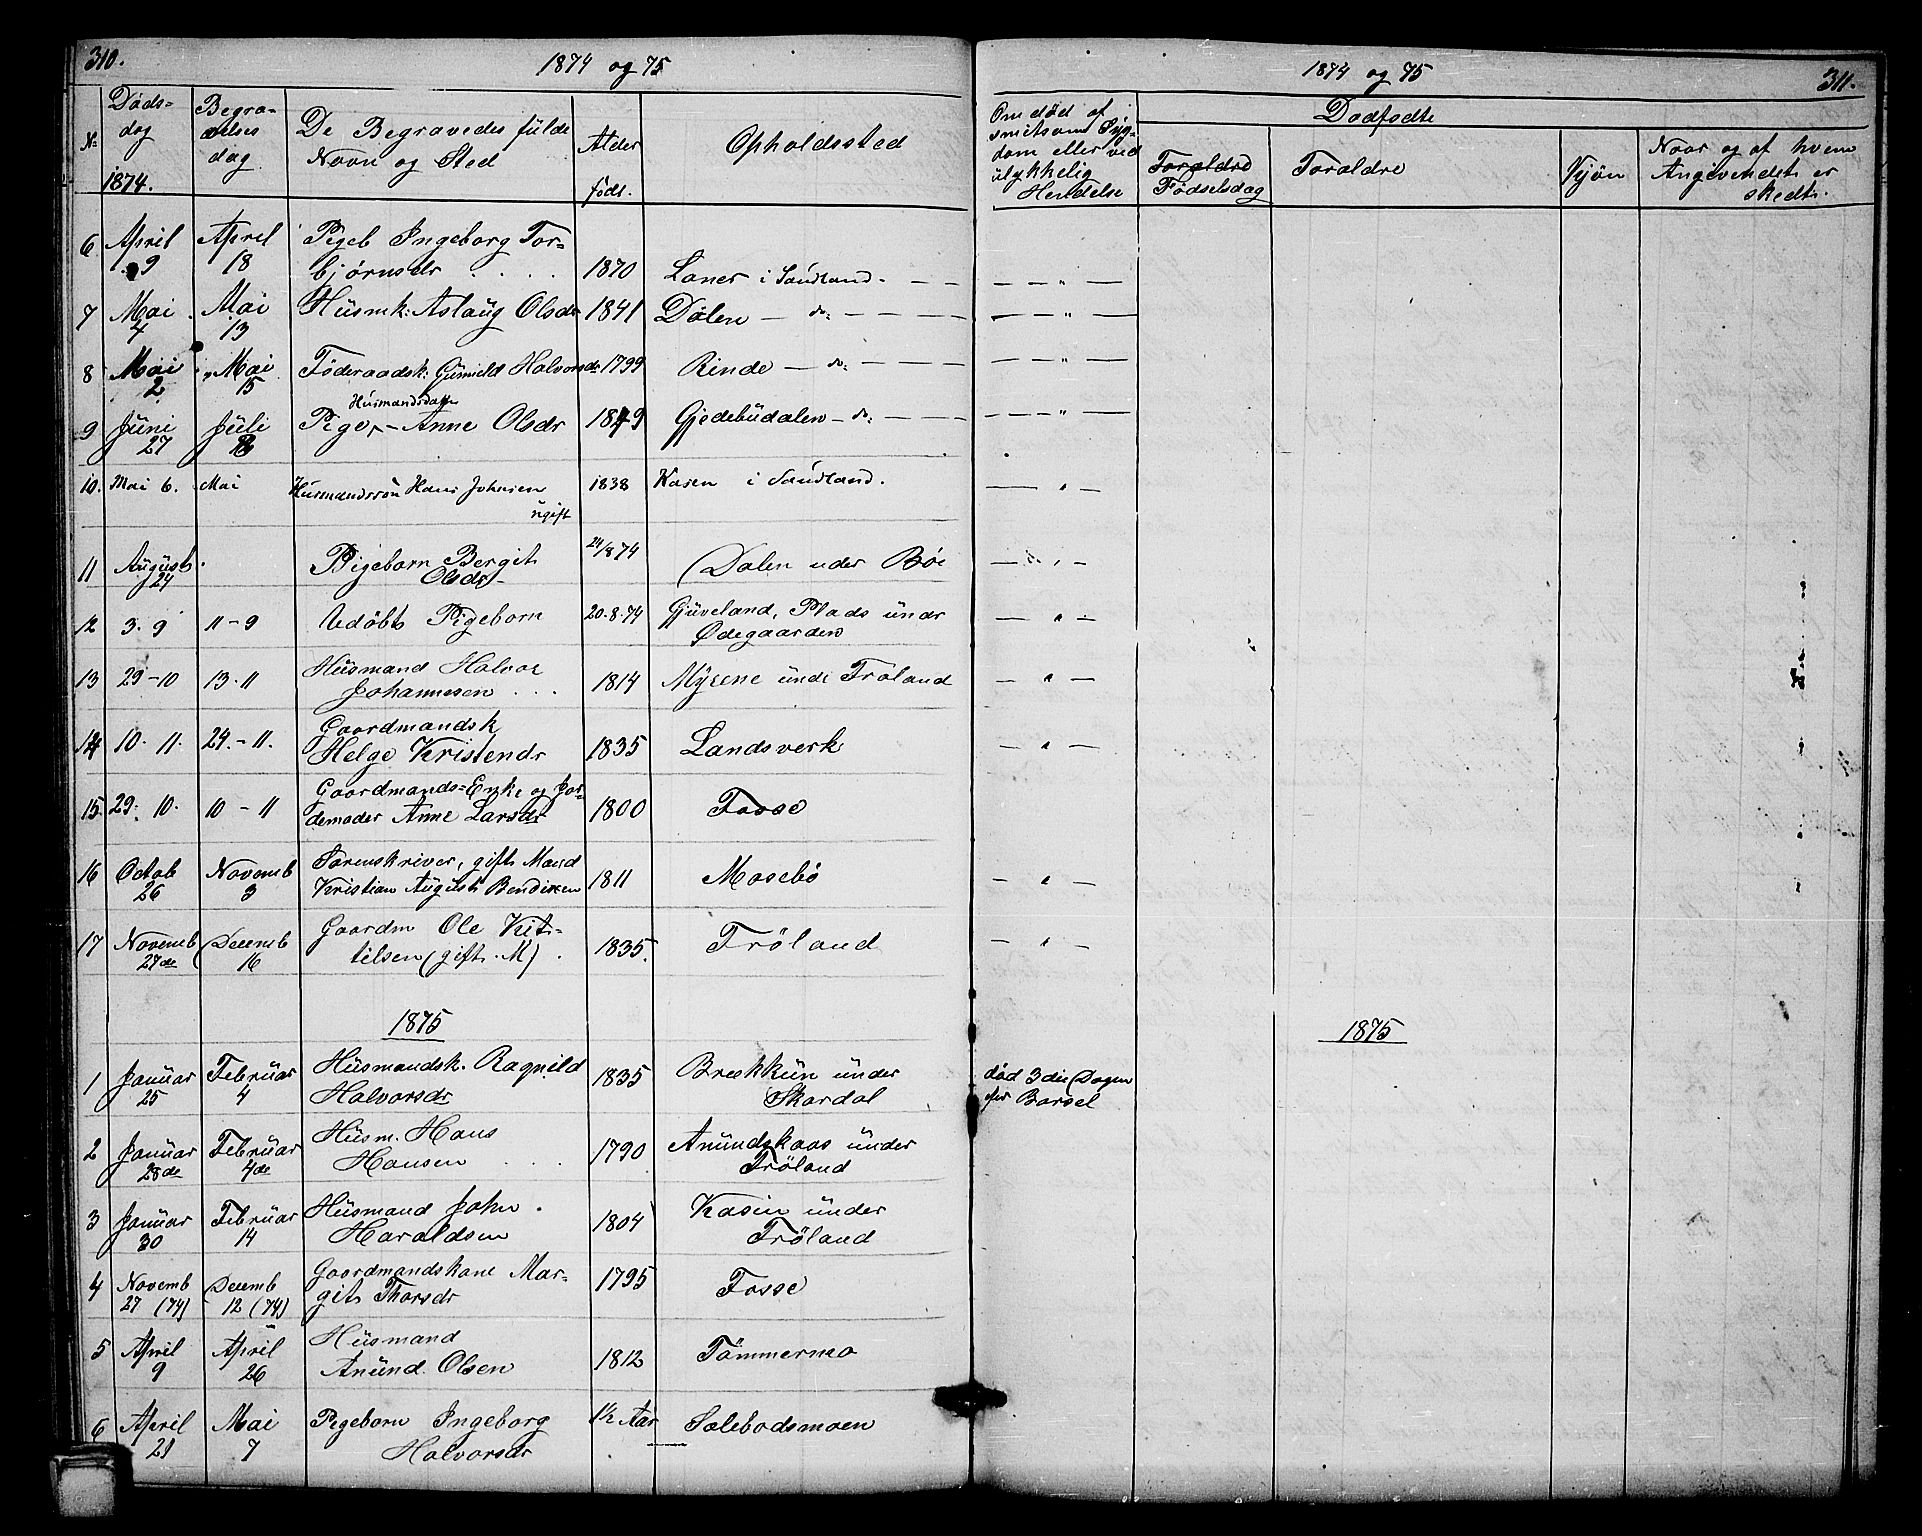 310.
1874 og 75
No
Døds-
dag
1874.
Begra-
velses
dag
De Begravedes fulde
Navn og Sted
Alder
født.
Opholdssted
6 April 9 April 18 Pigeb Ingeborg Tor-
bjørnsdr . . . . 1870 Laner i Sandland. — —
7 Mai 4 Mai 13 Husmk: Aslaug Olsdr 1841 Dalen — do: — — — —
8 Mai 2 Mai 15 Føderaadsk: Gunield Halvorsdr 1799 Rinde — do: — — —
Husmandsdatter
9 Juni 27 Juli Pige, - Anne Olsdr 1849 Gjedebudalen — do: — — —
10. Mai 6. Mai Husmandssøn Hans Johnsen 1838 Kasen i Sandland.
ugift
11 August 24 Pigebarn Bergit 24/8 74 Dalen under Bøe
Olsdr
12 3. 9 11-9 Udøbt Pigebarn 20.8.74 Gjuveland, Plads under
Ødegaarden
13 29-10 13.11 Husmand Halvor
Johannesen . . . 1814 Myrene under Frøland
14 10. 11. 24.-11. Gaardmandsk
Helge Kristendr 1835 Landsverk
15 29. 10. 10-11 Gaardmands-Enke og Jor-
demoder Anne Larsdr 1800 Fosse
16 Octob 26 Novemb 3 Sorenskriver, gift Mand
Kristian August Bendixen 1811 Mosebø
17 Novemb 27de Decemb 16 Gaardm Ole Kit-
tilsen (gift. M) . 1835. Frøland
1875
1 Januar 25 Februar 4 Husmandsk. Ragnild
Halvorsdr 1835 Brækkun under
Skardal
2 Januar 28de Februar 4de Husm. Hans
Hansen . . . 1790 Anundskaas under
Frøland
3 Januar 30 Februar 14 Husmand John .
Haraldsen 1804 Kasin under
Frøland
4 Novemb 27 (74) Decemb 12 (74) Gaardmandskone Mar-
git Thorsdr 1795 Fosse
5 April 9 April 26 Husmand
Anund Olsen 1812 Tømmermo
6 April 21 Mai 7 Pigebarn Ingeborg
Halvorsdr 1½ Aar Solebodsmoen
1874 og 75
311.
Om død af
smitsom Syg-
dom eller ved
ulykkelig
Hendelse
Dødfødte
Forældre
Fødselsdag
Forældre
Kjøn
Naar og af hvem
Angivendet er
skedt.
— — " —
— — " —
— — " —
— — — " —
— " —
— " —
— " —
— " —
— " —
— " —
— " —
1875
død 3die Dagen
efter Barsel